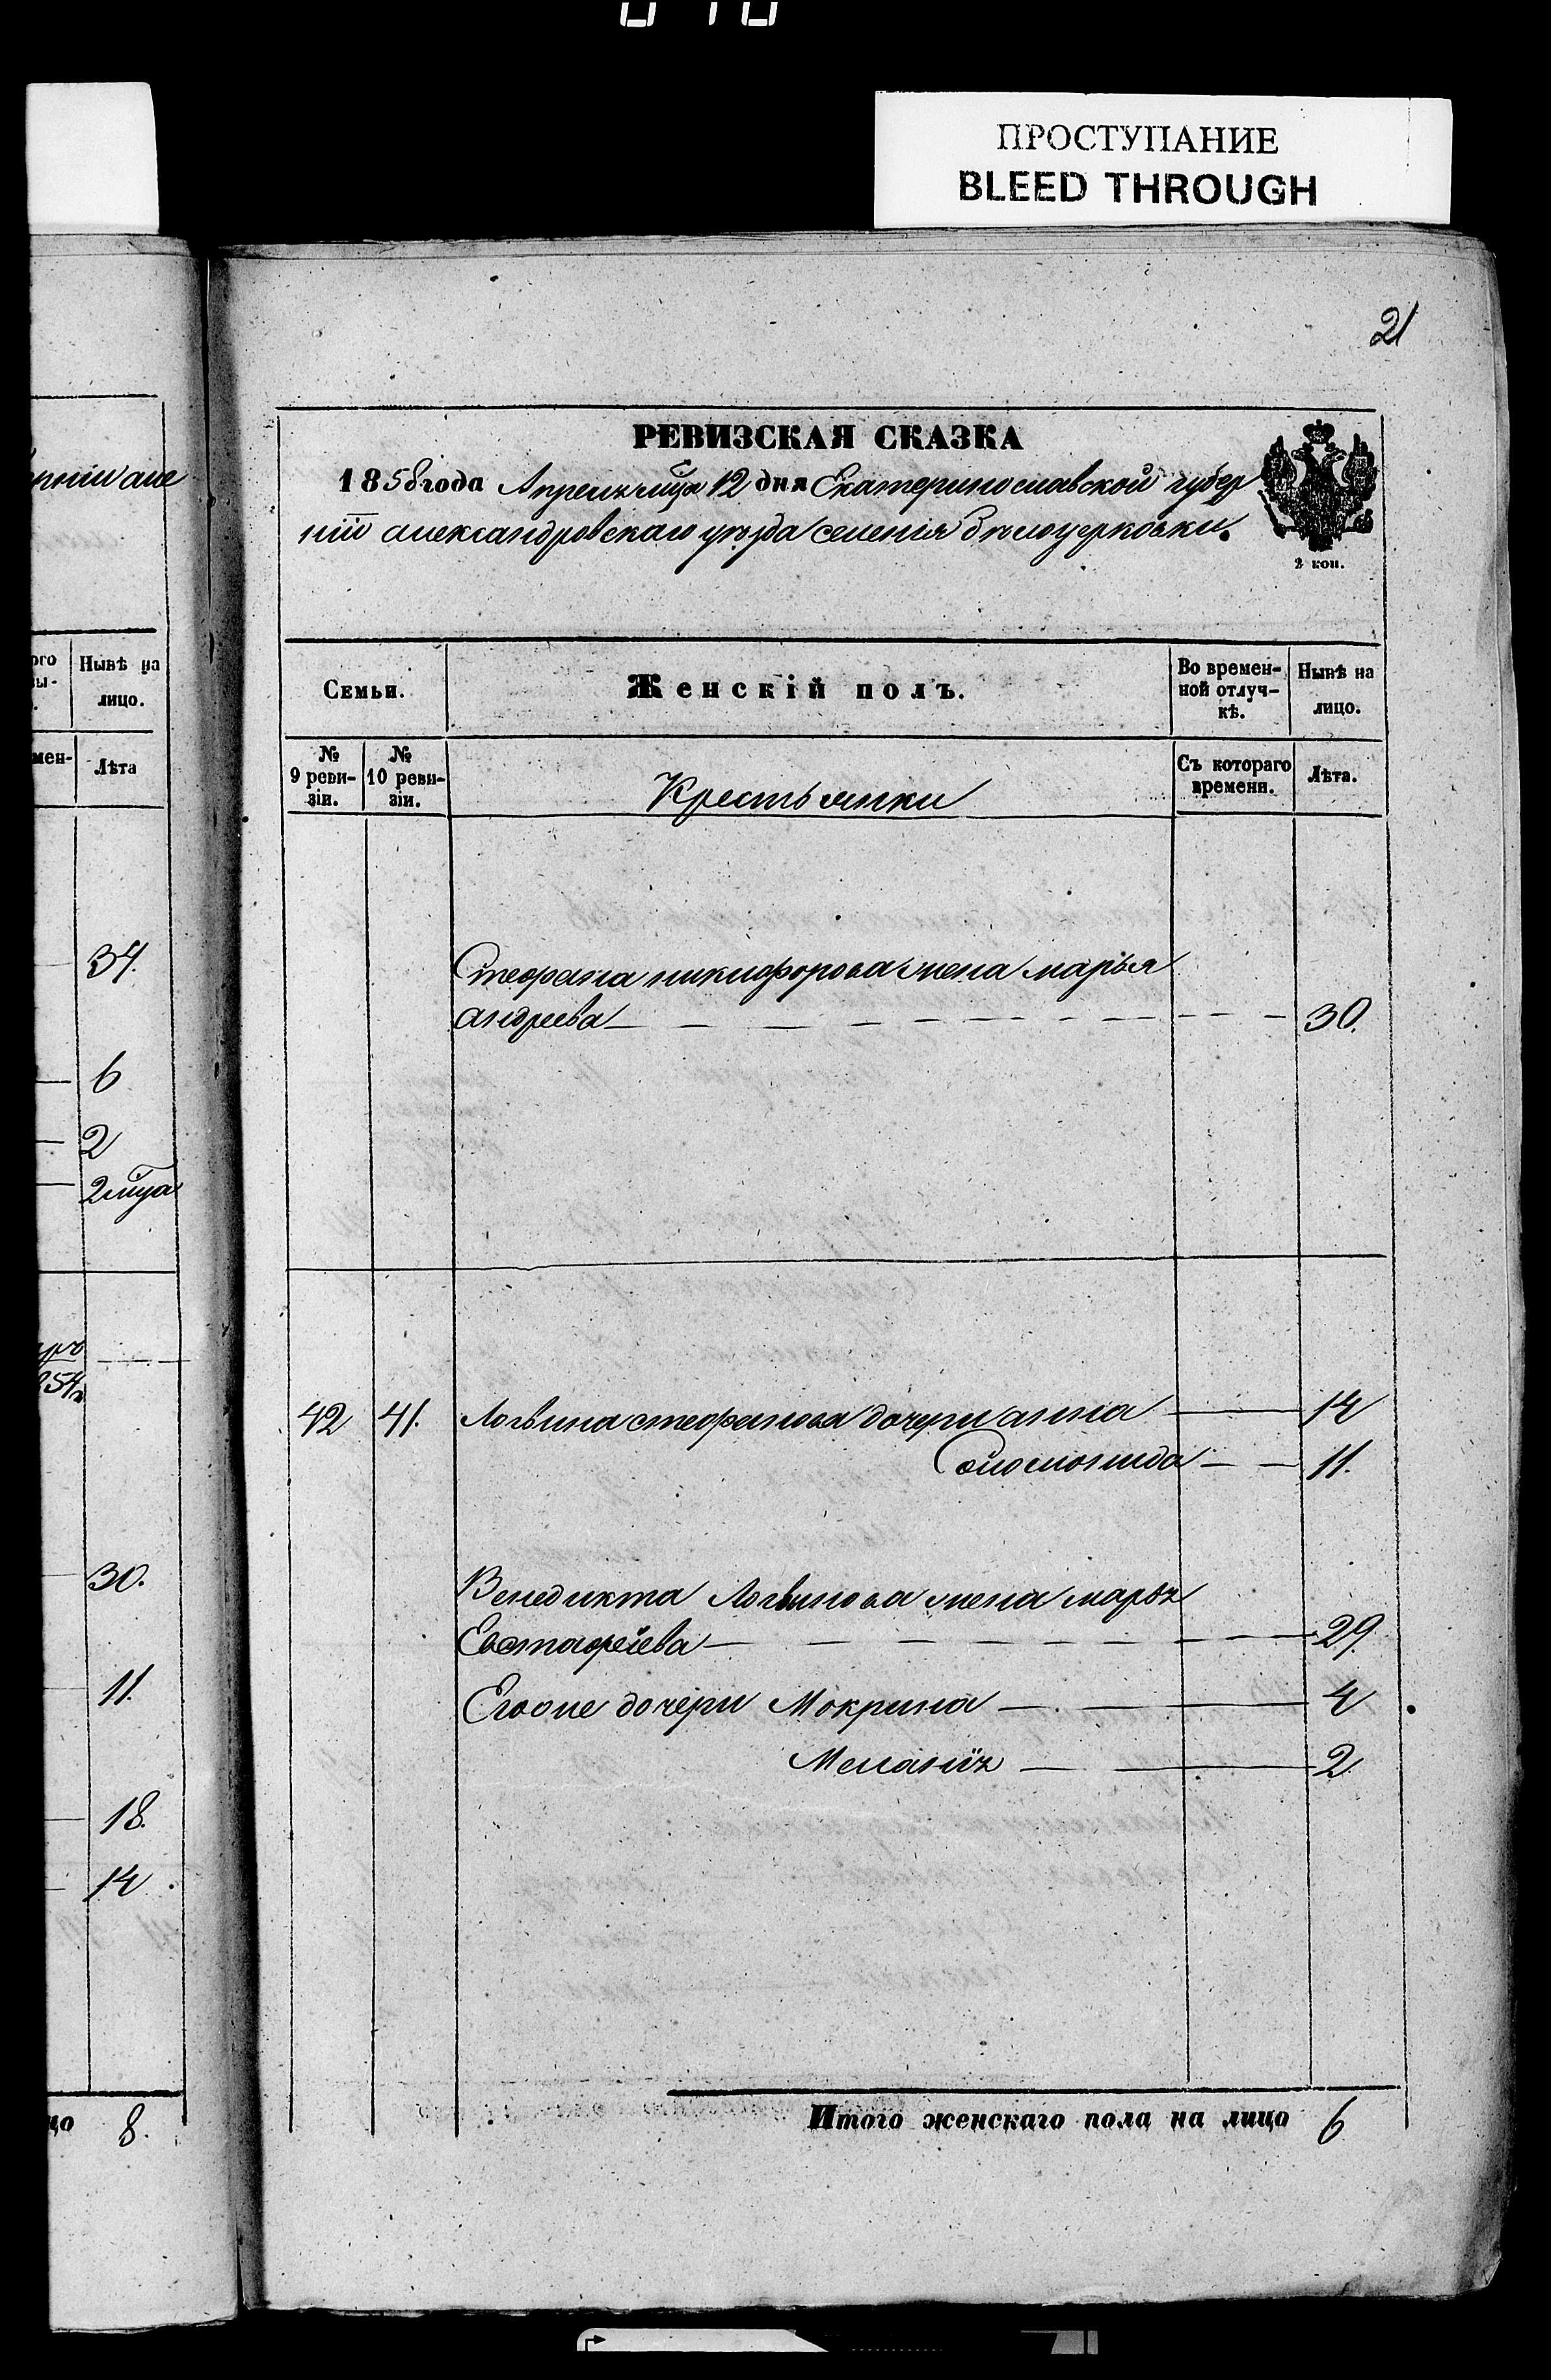 ПРОСТУПАНИЕ
BLEED THROUGH
21
РЕВИЗСКАЯ СКАЗКА
1858 года Апреля мца 12 дня Екатеринославской губер
ніи александровскаго уѣзда селенія бѣлоцерковки.
2 коп.
Семьи. Женскій полъ. Во времен- Нынѣ на
ной отлуч- лицо.
кѣ.
№ № Съ котораго Лѣта.
9 реви- 10 реви- времени.
зіи. зіи.
Крестьянки
Стефана никифорова жена марья
андреева 30.
42 41. Логвина стефанова дочери анна 14
11.
Венедикта Логвинова жена марья
Евстафіева 29.
Егоже дочери Мокрина 4
Меланія 2
Итого женскаго пола на лицо 6
Нынѣ на
лицо.
Лѣта
34.
6
2
2 мца
30.
11.
18.
14
8.